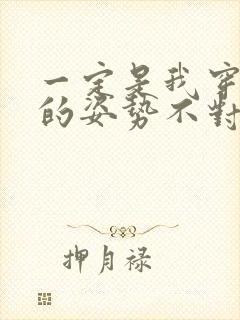 一定是我穿
的姿势不對
押月禄